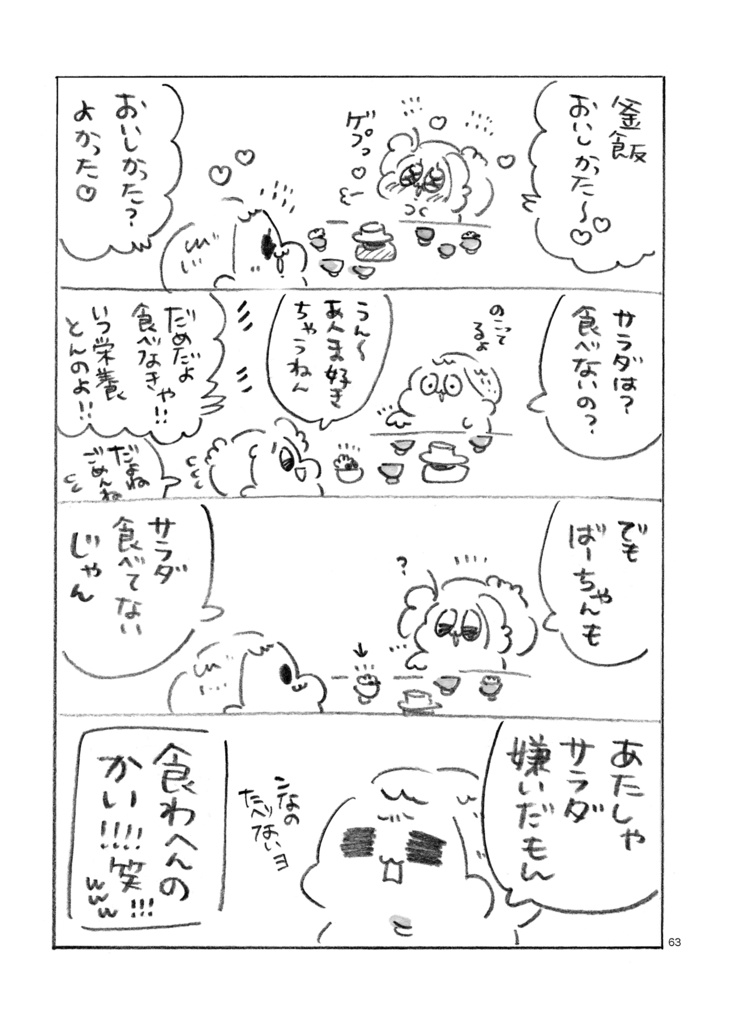 釜飯
おいしかった〜♡♡
ゲプっ
おいしかった?
よかった♡
サラダは?
食べないの?
のこって
るよ
うん〜
あんま好き
ちゃうねん
だめだよ
食べなきゃ!!
いつ栄養
とんのよ!!
だよね
ごめんね
でも
ばーちゃんも
?
サラダ
食べてない
じゃん
あたしゃ
サラダ
嫌いだもん
こなの
たべないヨ
食わへんの
かい!!!!笑!!!
www
63